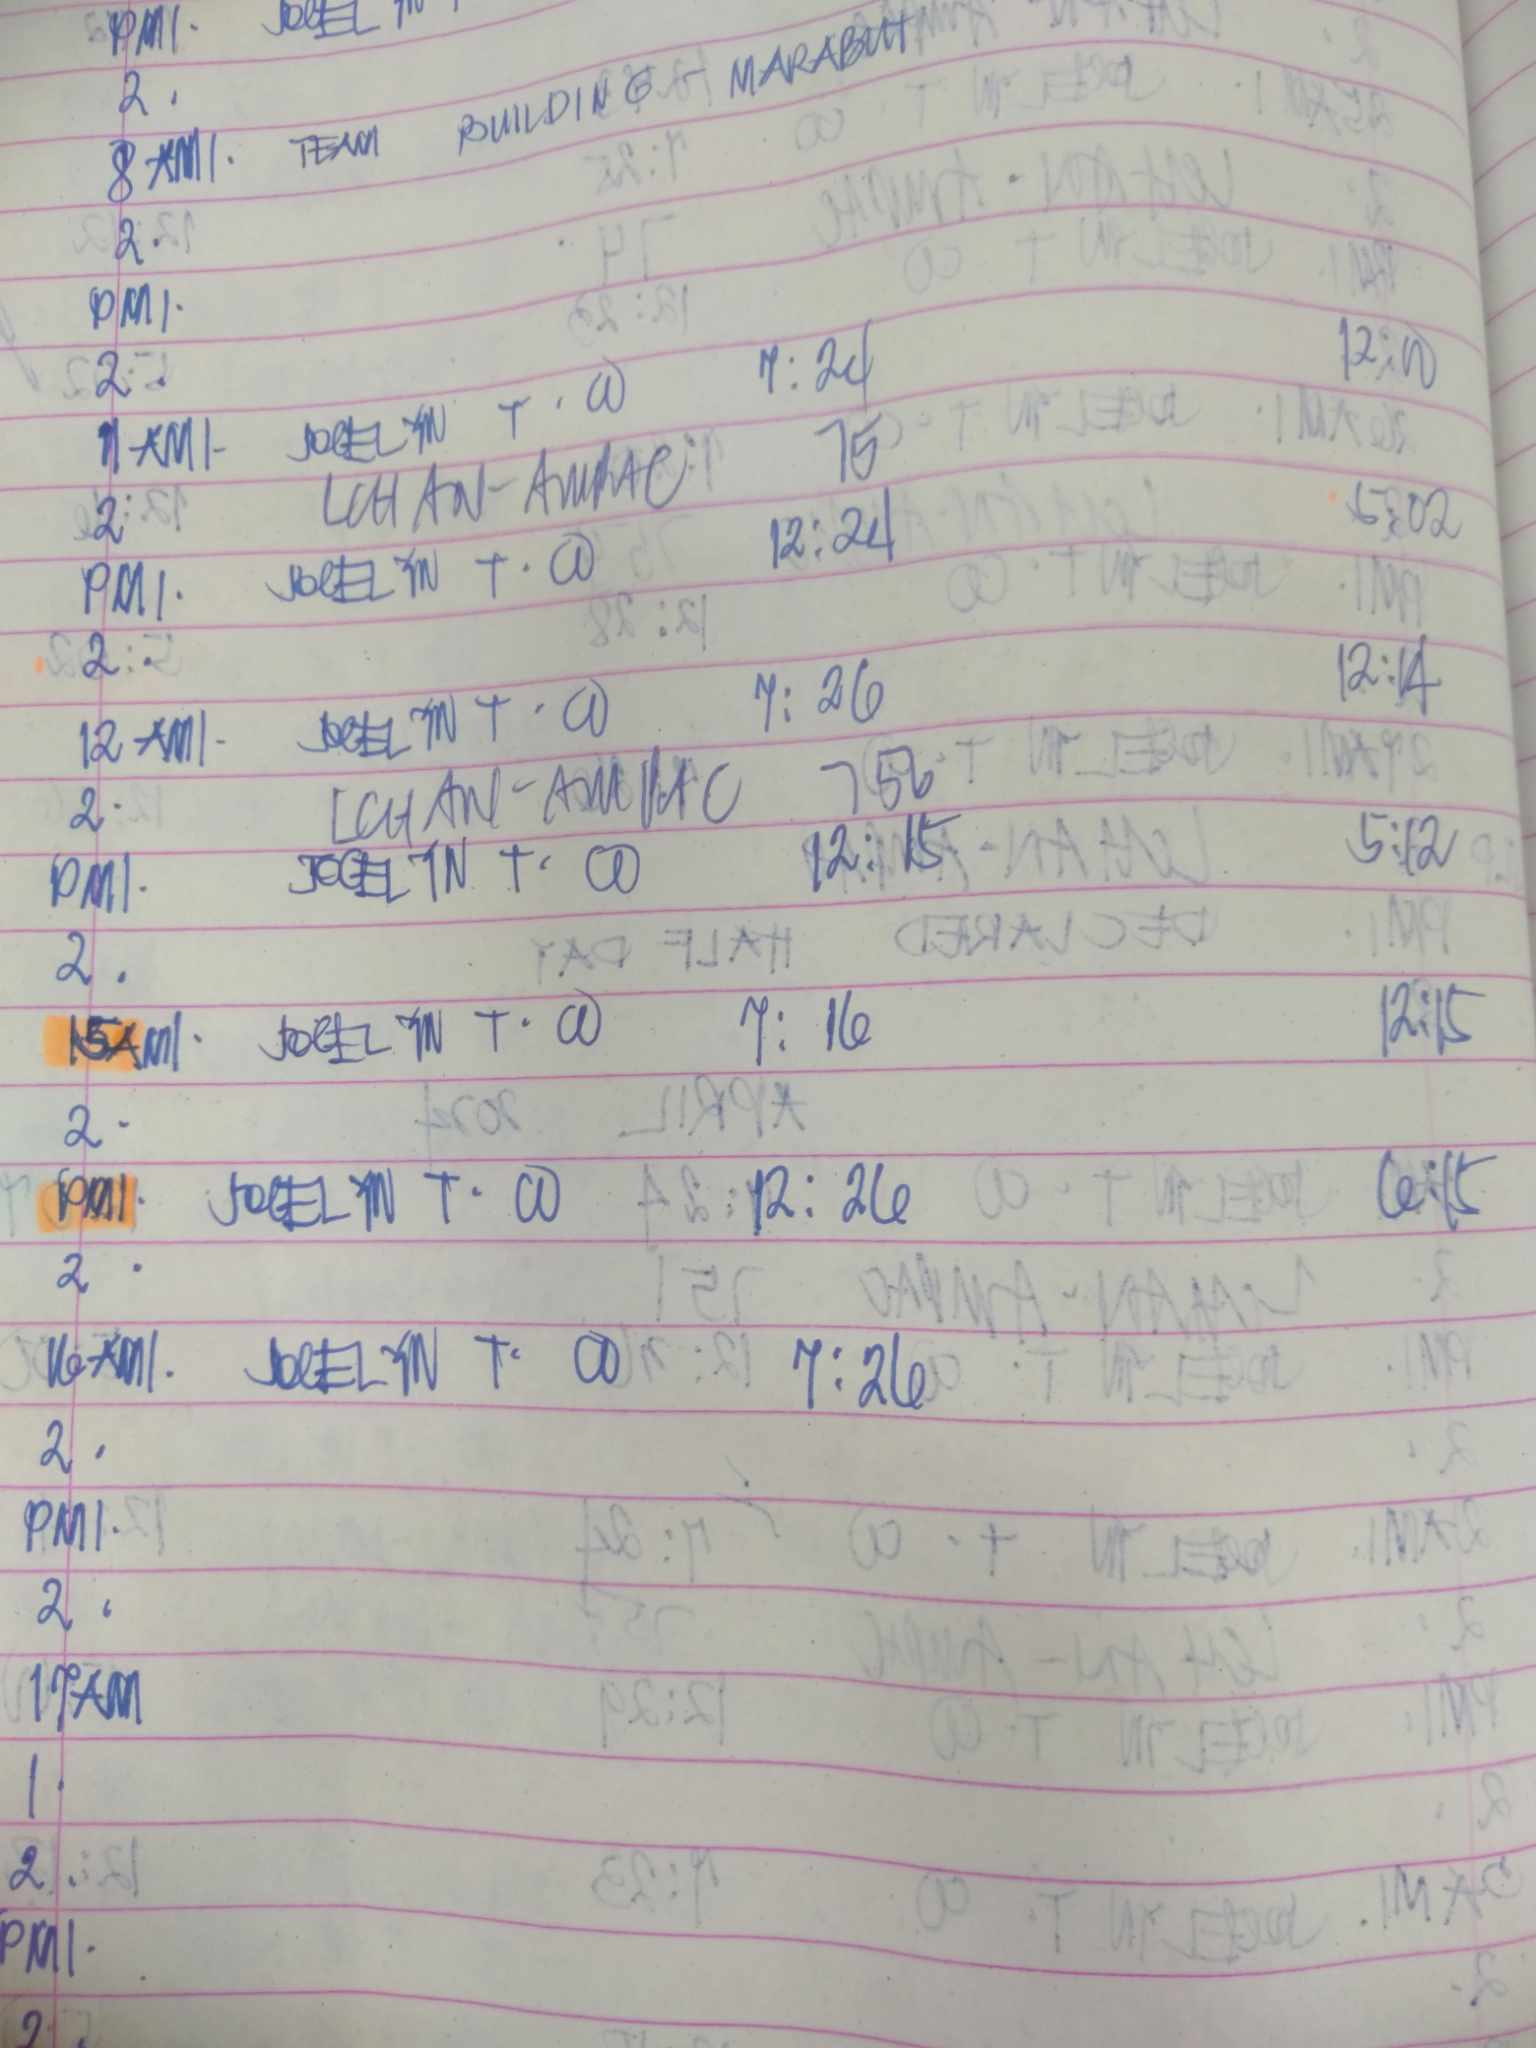 PM1. JOCELYN
2.
8 AM1. TEAM BUILDING - MARABUT
2.
PM1.
2.
11 AM1- JOCELYN T. CO 7:24 12:10
2. LCHAN-AMPAC 75
PM1. JOCELYN T. CO 12:24 5:02
2.
12 AM1- JOCELYN T. CO 7:26 12:14
2. LCHAN-AMPAC 756
PM1. JOCELYN T. CO 12:15 5:12
2.
15AM1. JOCELYN T. CO 7:16 12:15
2.
PM1. JOCELYN T. CO 12:26 6:15
2.
16AM1. JOCELYN T. CO 7:26
2.
PM1.
2.
17AM
1.
2.
PM1.
2.